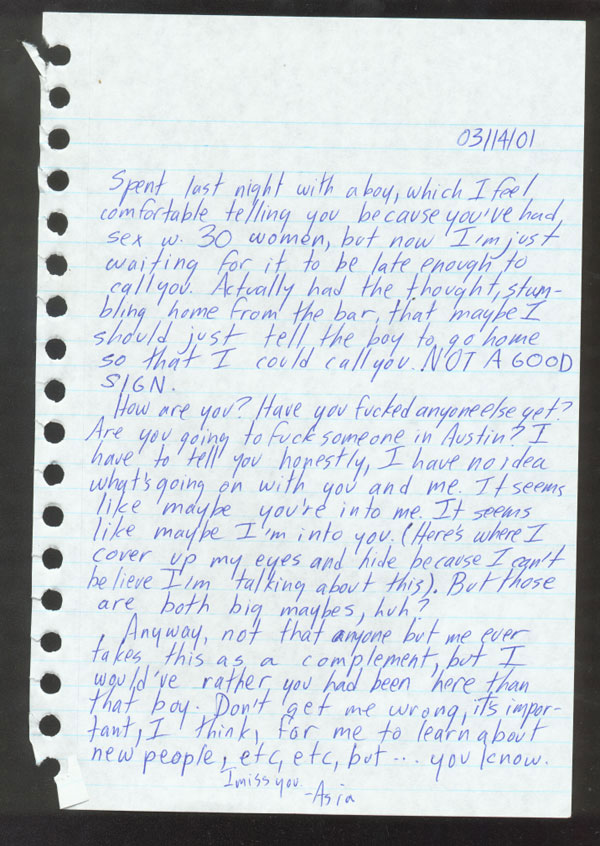 03/14/01
Spent last night with a boy, which I feel
comfortable telling you because you've had
sex w. 30 women, but now I'm just
waiting for it to be late enough to
call you. Actually had the thought, stum-
bling home from the bar, that maybe I
should just tell the boy to go home
so that I could call you. NOT A GOOD
SIGN.
How are you? Have you fucked anyone else yet?
Are you going to fuck someone in Austin? I
have to tell you honestly, I have no idea
what's going on with you and me. It seems
like maybe you're into me. It seems
like maybe I'm into you. (Here's where I
cover up my eyes and hide because I can't
believe I'm talking about this). But those
are both big maybes, huh?
Anyway, not that anyone but me ever
takes this as a complement, but I
would've rather you had been here than
that boy. Don't get me wrong, it's impor-
tant, I think, for me to learn about
new people, etc, etc, but ... you know.
I miss you.
-Asia